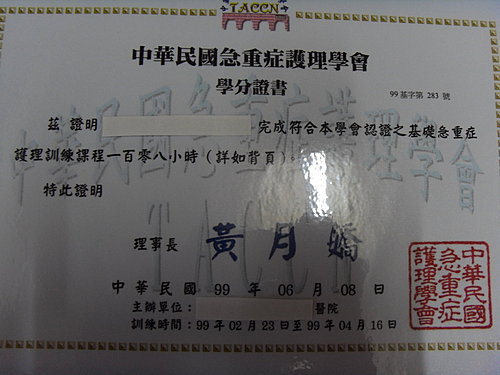 TACCN
中華民國急重症護理學會
學分證書
99基字第 283 號
茲 證明 完成符合本學會認證之基礎急重症
護理訓練課程一百零八小時(詳如背頁)。
特此證明
理事長 黃月嬌
中華民國 99 年 06 月 08 日
主辦單位: 醫院
訓練時間:99 年 02 月 23 日至 99 年 04 月 16 日
中華民國
急重症
護理學會